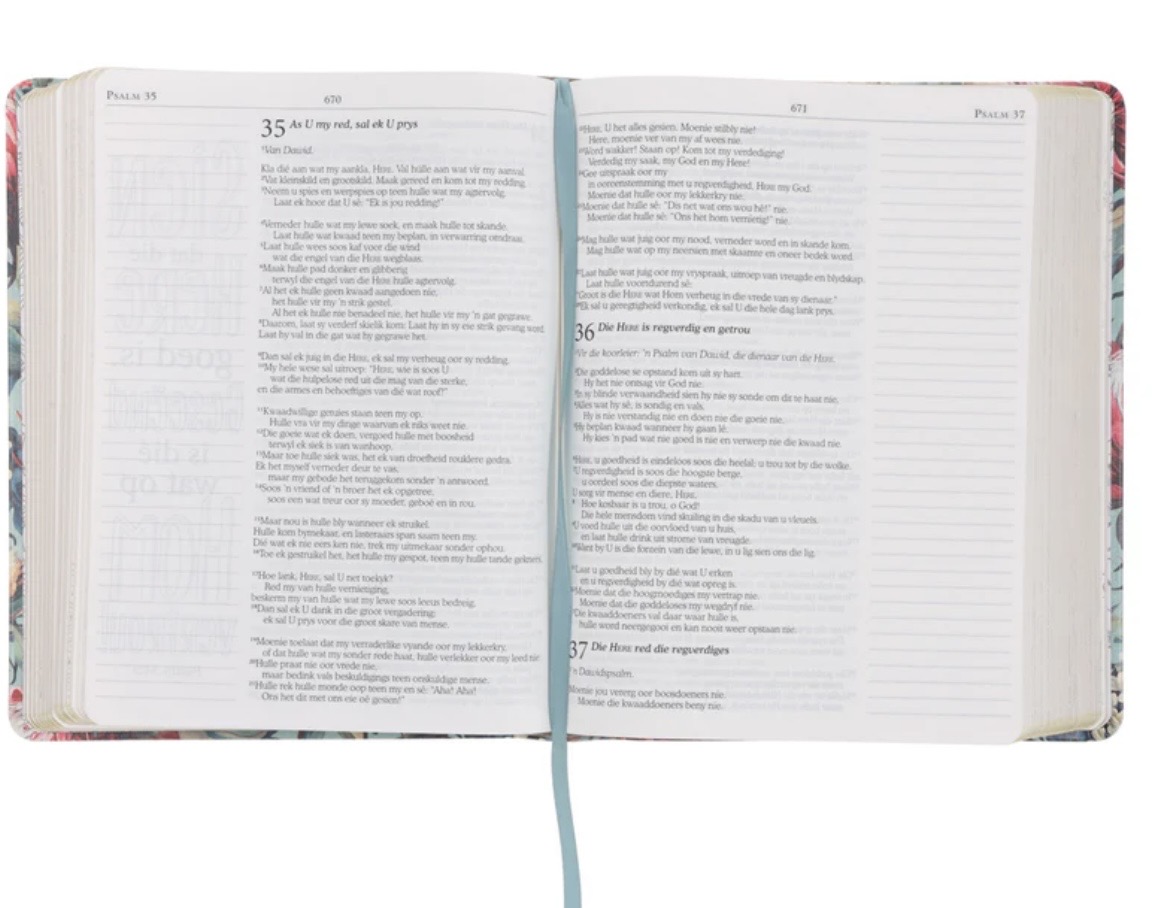 PSALM 35
670
35 As U my red, sal ek U prys
¹Van Dawid.
Kla dié aan wat my aankla, HERE. Val hulle aan wat vir my aanval.
²Vat kleinskild en grootskild. Maak gereed en kom tot my redding.
³Neem u spies en werpspies op teen hulle wat my agtervolg.
Laat ek hoor dat U sê: “Ek is jou redding!”
⁴Verneder hulle wat my lewe soek, en maak hulle tot skande.
Laat hulle wat kwaad teen my beplan, in verwarring omdraai.
⁵Laat hulle wees soos kaf voor die wind
wat die engel van die HERE wegblaas.
⁶Maak hulle pad donker en glibberig
terwyl die engel van die HERE hulle agtervolg.
⁷Al het ek hulle geen kwaad aangedoen nie,
het hulle vir my ’n strik gestel.
Al het ek hulle nie benadeel nie, het hulle vir my ’n gat gegrawe.
⁸Daarom, laat sy verderf skielik kom: Laat hy in sy eie strik gevang word.
Laat hy val in die gat wat hy gegrawe het.
⁹Dan sal ek juig in die HERE, ek sal my verheug oor sy redding.
¹⁰My hele wese sal uitroep: “HERE, wie is soos U
wat die hulpelose red uit die mag van die sterke,
en die armes en behoeftiges van dié wat roof?”
¹¹Kwaadwillige getuies staan teen my op.
Hulle vra vir my dinge waarvan ek niks weet nie.
¹²Die goeie wat ek doen, vergoed hulle met boosheid
terwyl ek siek is van wanhoop.
¹³Maar toe hulle siek was, het ek van droefheid rouklere gedra.
Ek het myself verneder deur te vas,
maar my gebede het teruggekom sonder ’n antwoord.
¹⁴Soos ’n vriend of ’n broer het ek opgetree,
soos een wat treur oor sy moeder, geboë en in rou.
¹⁵Maar nou is hulle bly wanneer ek struikel.
Hulle kom bymekaar, en lasteraars span saam teen my.
Dié wat ek nie eers ken nie, trek my uitmekaar sonder ophou.
¹⁶Toe ek gestruikel het, het hulle my gespot, teen my hulle tande gekners.
¹⁷Hoe lank, HERE, sal U net toekyk?
Red my van hulle vernietiging,
beskerm my van hulle wat my lewe soos leeus bedreig.
¹⁸Dan sal ek U dank in die groot vergadering;
ek sal U prys voor die groot skare van mense.
¹⁹Moenie toelaat dat my verraderlike vyande oor my lekkerkry,
of dat hulle wat my sonder rede haat, hulle verlekker oor my leed nie.
²⁰Hulle praat nie oor vrede nie,
maar bedink vals beskuldigings teen onskuldige mense.
²¹Hulle rek hulle monde oop teen my en sê: “Aha! Aha!
Ons het dit met ons eie oë gesien!”
671
PSALM 37
²²HERE, U het alles gesien. Moenie stilbly nie!
Here, moenie ver van my af wees nie.
²³Word wakker! Staan op! Kom tot my verdediging!
Verdedig my saak, my God en my Here!
²⁴Gee uitspraak oor my
in ooreenstemming met u regverdigheid, HERE my God.
Moenie dat hulle oor my lekkerkry nie.
²⁵Moenie dat hulle sê: “Dis net wat ons wou hê!” nie.
Moenie dat hulle sê: “Ons het hom vernietig!” nie.
²⁶Mag hulle wat juig oor my nood, verneder word en in skande kom.
Mag hulle wat op my neersien met skaamte en oneer bedek word.
²⁷Laat hulle wat juig oor my vryspraak, uitroep van vreugde en blydskap.
Laat hulle voortdurend sê:
“Groot is die HERE wat Hom verheug in die vrede van sy dienaar.”
²⁸Ek sal u geregtigheid verkondig, ek sal U die hele dag lank prys.
36 Die HERE is regverdig en getrou
¹Vir die koorleier: ’n Psalm van Dawid, die dienaar van die HERE.
²Die goddelose se opstand kom uit sy hart.
Hy het nie ontsag vir God nie.
³In sy blinde verwaandheid sien hy nie sy sonde om dit te haat nie.
⁴Alles wat hy sê, is sondig en vals.
Hy is nie verstandig nie en doen nie die goeie nie.
⁵Hy beplan kwaad wanneer hy gaan lê.
Hy kies ’n pad wat nie goed is nie en verwerp nie die kwaad nie.
⁶HERE, u goedheid is eindeloos soos die heelal; u trou tot by die wolke.
⁷U regverdigheid is soos die hoogste berge,
u oordeel soos die diepste waters.
U sorg vir mense en diere, HERE.
⁸ Hoe kosbaar is u trou, o God!
Die hele mensdom vind skuiling in die skadu van u vleuels.
⁹U voed hulle uit die oorvloed van u huis,
en laat hulle drink uit strome van vreugde.
¹⁰Want by U is die fontein van die lewe, in u lig sien ons die lig.
¹¹Laat u goedheid bly by dié wat U erken
en u regverdigheid by dié wat opreg is.
¹²Moenie dat die hoogmoediges my vertrap nie.
Moenie dat die goddeloses my wegdryf nie.
¹³Die kwaaddoeners val daar waar hulle is,
hulle word neergegooi en kan nooit weer opstaan nie.
37 Die HERE red die regverdiges
¹’n Dawidspsalm.
Moenie jou vererg oor boosdoeners nie.
Moenie die kwaaddoeners beny nie.